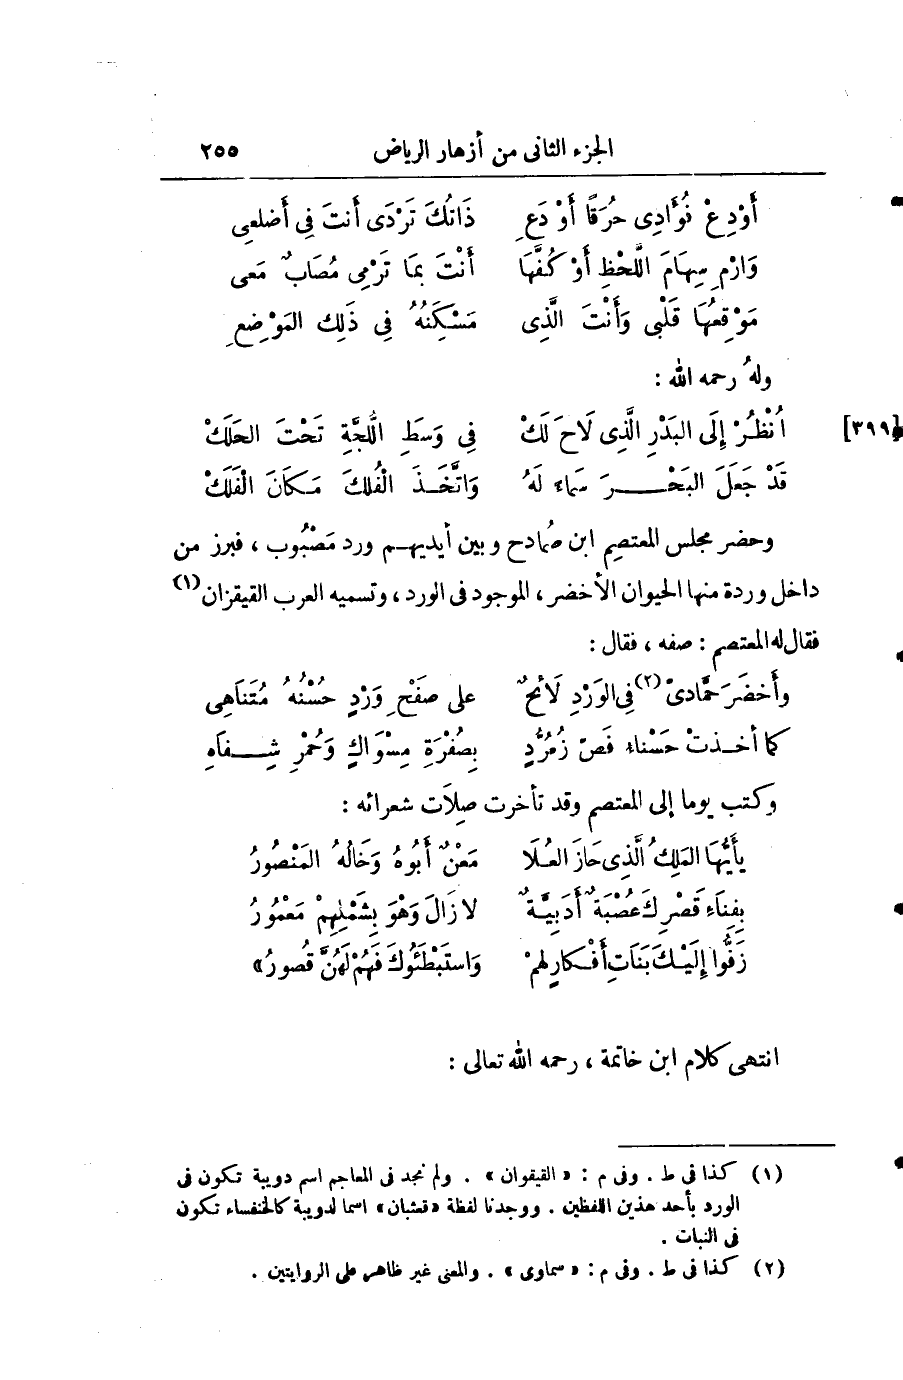 الجزء الثانى من أزهار الرياض ٢٥٥
أَوْدِعْ فُوَّادِى حُرَقًا أَوْ دَعِ ذَاتُكَ تَرْدَى أَنتَ فِى أَضلعِى
وَارْمِ سِهَامَ اللَّحْظِ أَوْ كُفَّهَا أَنْتَ بِمَا تَرْمِى مُصَابٌ مَعى
مَوْقِعُهَا قَلْبِى وَأَنْتَ الَّذِى مَسْكَنُهُ فِى ذَلِكَ المَوْضِعِ
ولهُ رحمه الله :
[٣٩٩] اُنْظُرْ إِلَى البَدْرِ الَّذِى لَاحَ لَكْ فِى وَسَطِ اللُّجَّةِ تَحْتَ الحَلَكْ
قَدْ جَعَلَ البَحْرَ سَمَاءً لَهُ وَاتَّخَذَ الْفُلكَ مَكَانَ الْفَلَكْ
وحضر مجلس المعتصم ابن صُمادح وبين أيديهم ورد مَصْبُوب ، فبرز من
داخل وردة منها الحيوان الأخضر ، الموجود فى الورد ، وتسميه العرب القيقزان (١)
فقال له المعتصم : صفه ، فقال :
وأَخضَرَ حَمَّادىّ (٢) فِى الوَرْدِ لَائحٌ على صفَحِْ وَرْدٍ حُسْنُهُ مُتَنَاهِى
كما أخذتْ حَسْناءُ فَصّ زُمرُّدٍ بِصُفْرَةِ مِسْوَاكٍ وَحُمْرِ شِفاَهِ
وكتب يوما إلى المعتصم وقد تأخرت صِلاَت شعرائه :
يأَيُّهَا المَلِكُ الَّذِى حَازَ العُلَا مَعْنٌ أَبُوهُ وَخَالُهُ المَنْصُورُ
بِفِنَاءِ قَصْرِكَ عُصْبَةٌ أَدَبِيَّةٌ لا زَالَ وَهْوَ بِشَمْلِهِمْ مَعْمُورُ
زَفُّوا إِلَيْكَ بَنَاتِ أَفْكارٍ لهمْ وَاستَبْطَئُوكَ فَهُمْ لَهُنَّ قُصورُ»
انتهى كلام ابن خاتمة ، رحمه الله تعالى :
(١) كذا فى ط . وفى م : « القيقوان » . ولم نجد فى المعاجم اسم دويبة تكون فى
الورد بأحد هذين اللفظين . ووجدنا لفظة «قعثبان» اسما لدويبة كالخنفساء تكون
فى النبات .
(٢) كذا فى ط . وفى م : « سماوى » . والمعنى غير ظاهر على الروايتين .